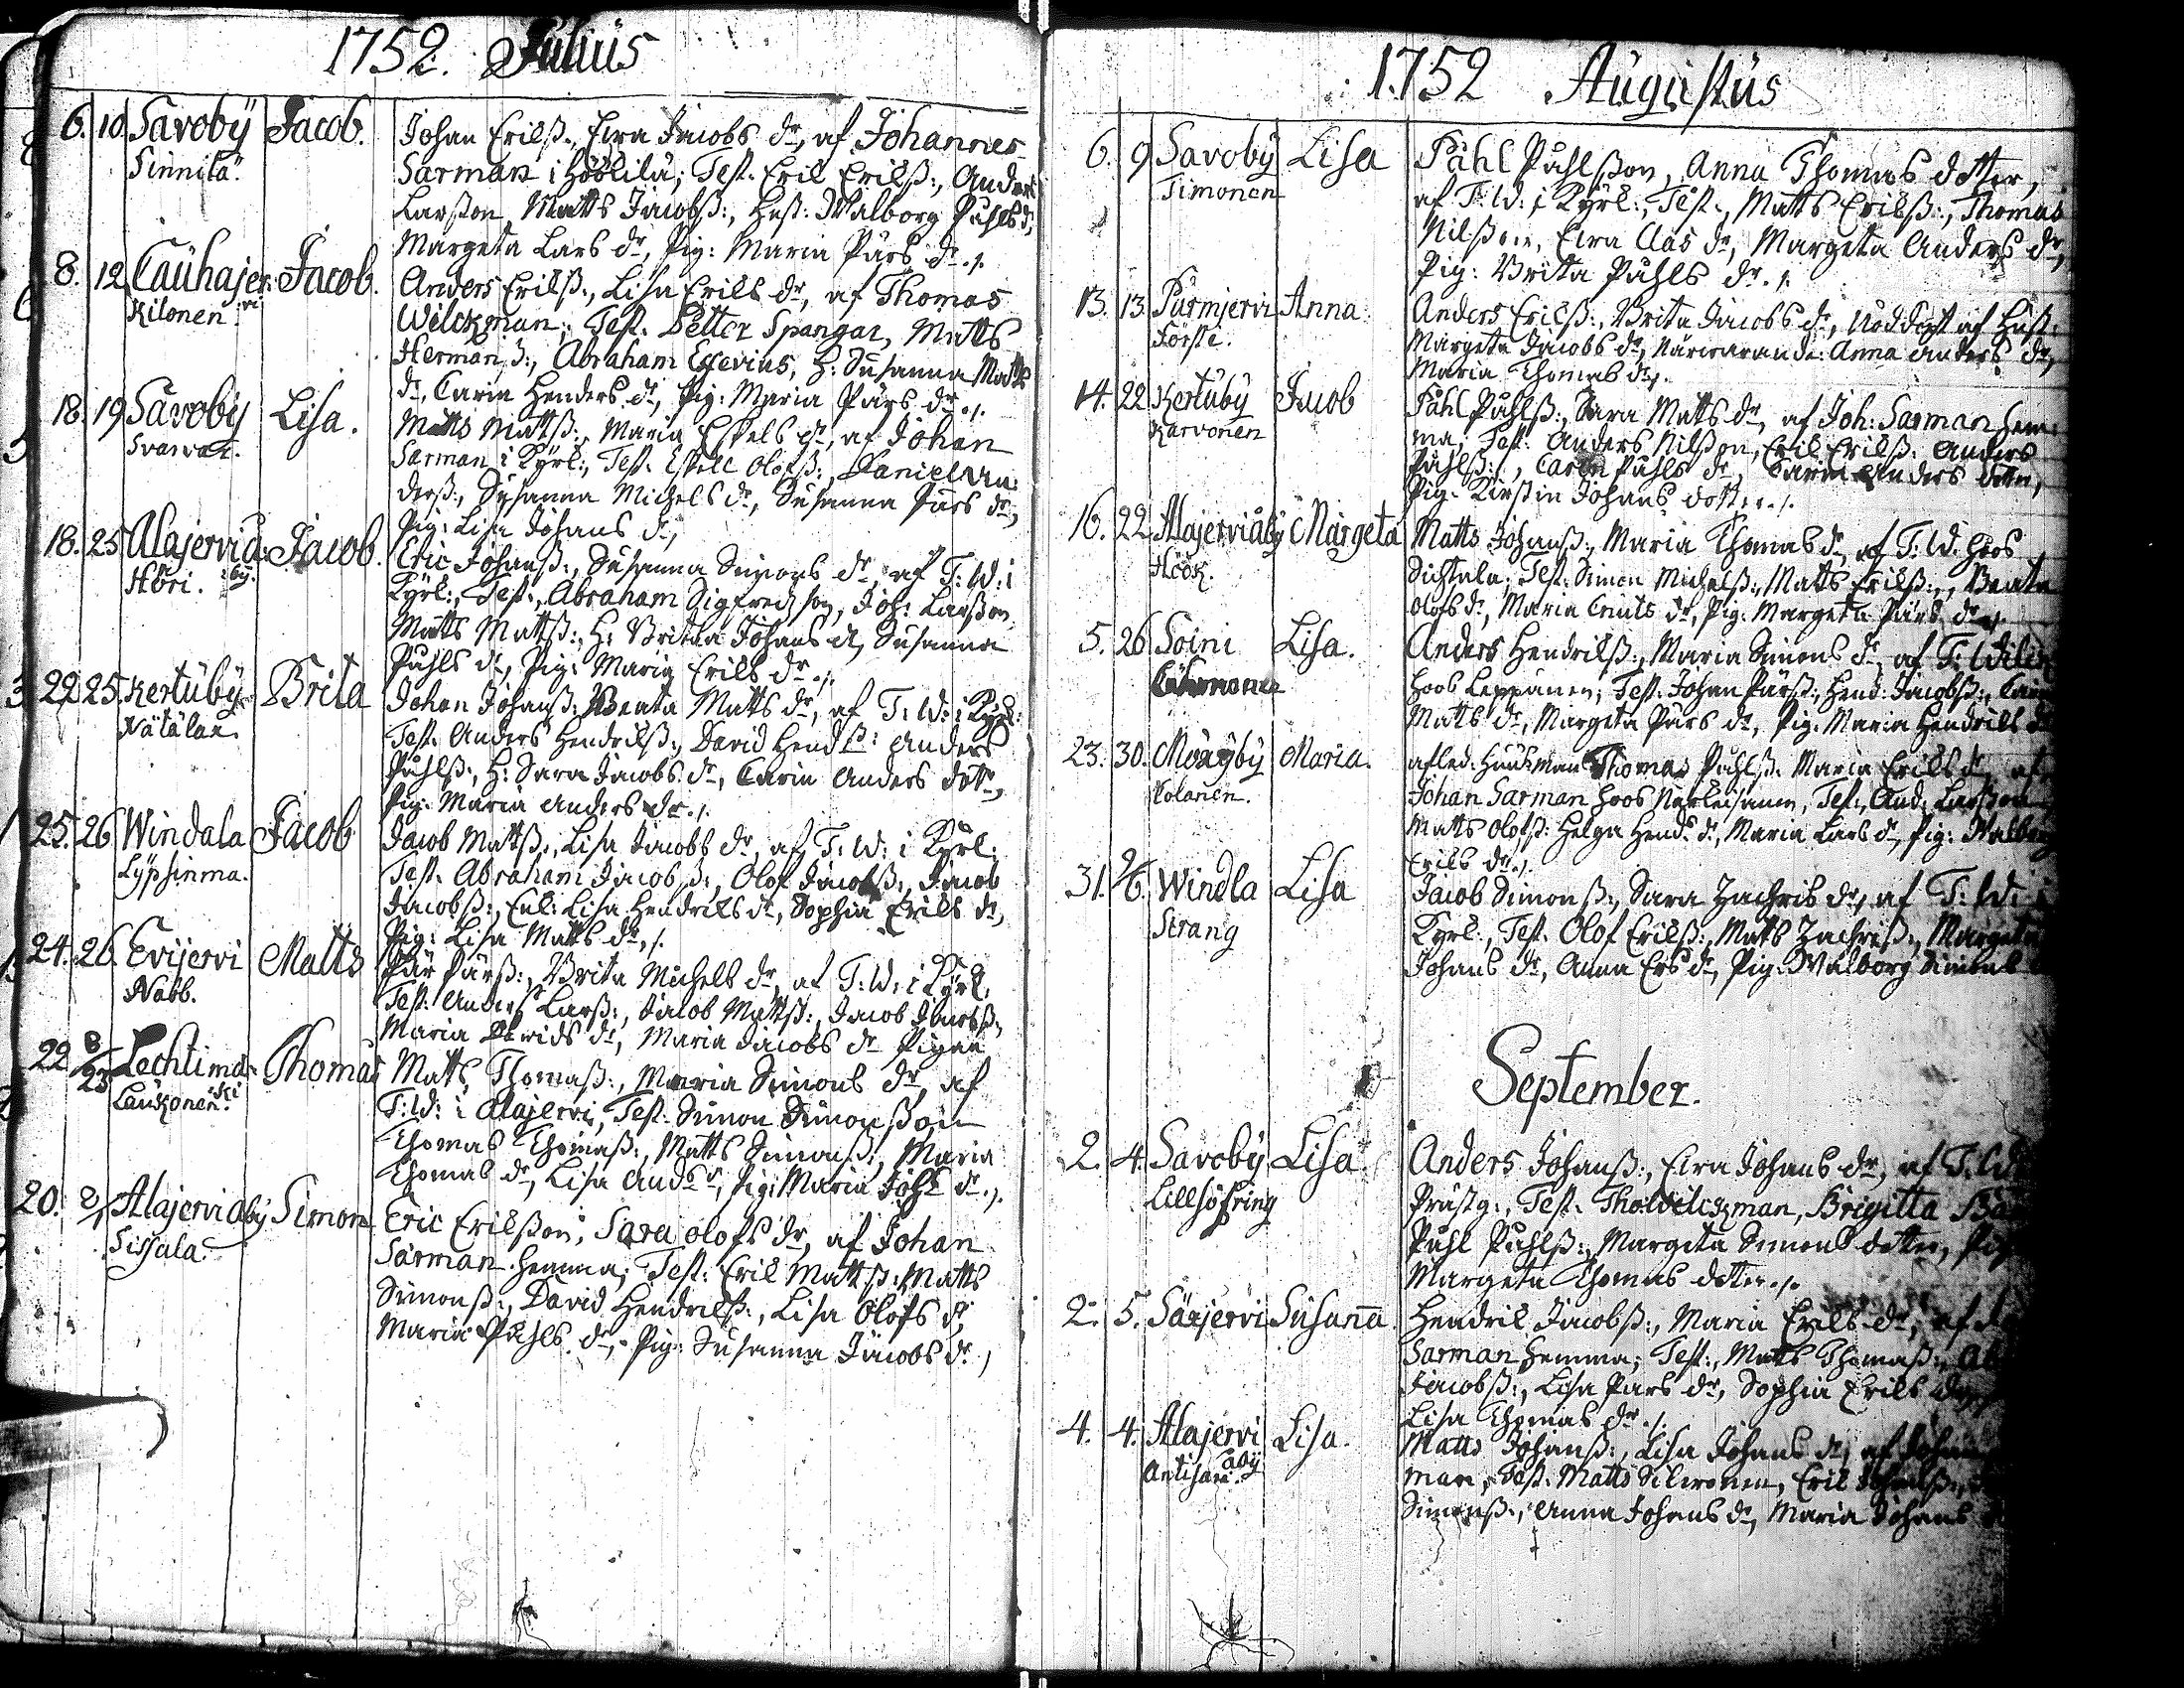 1752. Julius
6. 10 Savoby Jacob. Johan Erilß., Elra Jacobs dr, af Johannes
Sinnilä. Sarman i Höölilä; Test. Eril Erilß:, Anders
Larßon, Matts Jacobß:, Hust: Walborg Påhls dr,
Margeta Lars dr, Pig: Maria Pärs dr ./.
8. 12 Cauhajer- Jacob. Anders Erilß., Lisa Erils dr, af Thomas
Kilonen. vi Wilckman; Test. Petter Spangar, Matts
Herman ß:, Abraham, H: Susanna Matts
dr, Carin Henders dr, Pig: Maria Pärs dr ./.
18. 19 Savoby Lisa. Matts Mattß:, Maria Eskels dr, af Johan
Svarvar. Sarman i Kyrl:, Test. Eskell Olofß:, Daniel An-
derß:, Susanna Michels dr, Susanna Pärs dr,
Pig: Lisa Johans dr,
18. 25 Alajervi å- Jacob. Eric Johanß:, Susanna Simons dr, af T: W: i
Höri. by. Kyrl:, Test., Abraham Sigfredzson, Joh: Larßon
Matts Mattß:, H: Britha Johans dr, Susanna
Påhls dr, Pig: Maria Erils dr ./.
22 25. Kertuby Brita Johan Johanß:, Beata Matts dr, af T: W: i Kyrl:
Nätälar. Test. Anders Hendrilß:, David Hendß: Anders
Påhlß:, H: Sara Jacobs dr, Carin Anders dotr,
Pig: Maria Anders dr ./.
25. 26. Windala Jacob Jacob Matß:, Lisa Jacobs dr, af T: W: i Kyrl:
Lypsinma. Test. Abraham Jacobß:, Olof Jacobß:, Jacob
Jacobß:, Enl: Lisa Hendrils dr, Sophia Erils dr,
Pig: Lisa Matts dr, ./.
24. 26. Evijervi Matts Pär Pärß:, Brita Michels dr, af T: W: i Kyrl.
Nabb. Test. Anders Larß:, Jacob Mattß:, Jacob Jacobß:,
Maria Davids dr, Maria Jacobs dr Pigan
22 8/23 Lechtimä- Thomas Matts Thomaß:, Maria Simons dr, af
Laukonen. ki T: W: i Alajervi, Test. Simon Simonßon
Thomas Thomaß:, Matts Simonß:, Maria
Thomas dr, Lisa Ands dr, Pig: Maria Joh: dr ./.
20. 2/ Alajerviåby Simon Eric Erilßon, Sara Olofs dr, af Johan
Sissala. Sarman hemma; Test: Eril Mattß: Matts
Simonß:, David Hendrilß:, Lisa Olofs dr,
Maria Påhls dr, Pig: Susanna Jacobs dr,
1752 Augustus
6. 9 Savoby Lisa Påhl Påhlßon, Anna Thomas dotter,
Timonen af T: W: i Kyrl:, Test., Matts Erilß:, Thomas
Nilßon, Elra Clas dr, Margeta Anders dr,
Pig: Brita Påhls dr ./.
13. 13. Purmjervi Anna Anders Erilß:, Brita Jacobs dr, Nöddöpt af Hust:
Förste. Margeta Jacobs dr, Närwarande: Anna Anders dr,
Maria Thomas dr ./.
14. 22 Kertuby Jacob Påhl Påhlß:, Sara Matts dr, af Joh: Sarman hem-
Karvonen ma; Test: Anders Nilßon, Eril Erilß: Anders
Påhlß:, Carin Påhls dr, Carin Anders dotter,
Pig: Kirstin Johans dotter ./.
16. 22 Alajerviåby Margeta Matts Johanß:, Maria Thomas dr, af T: W. hoos
Höök. Sichtala; Test: Simon Michelß:, Matts Erilß:, Beata
Olofs dr, Maria Cnuts dr, Pig: Margeta Pärs dr ./.
5. 26 Soini Lisa. Anders Hendrilß:, Maria Simons dr, af T:
hoos Leppänen; Test: Johan Pärß:, Hend: Jacobß:,
Matts dr, Margeta Pärs dr, Pig: Maria Hendrils
23. 30. Möxyby Maria. afled: Huukman Thomas Påhlß: Maria Erils dr af
Kolanen. Johan Sarman hoos, Test:, And: Larßon
Matts Olofß: Helga Hends dr, Maria Lars dr, Pig: Walborg
Erils dr ./.
31. 9/6. Windla Lisa Jacob Simonß:, Sara Zachris dr, af T: W: i
Strang Kyrl:, Test. Olof Erilß:, Matts Zachrisß:, Margeta
Johans dr, Anna Ers dr, Pig: Walborg Simons
September.
2. 4. Savoby Lisa. Anders Johanß:, Elra Johans dr, af T. W
Lillsöfring Prästg:, Test. Tho: Wilckman, Brigitta
Påhl Påhlß:, Margeta Simons dotter, Pig
Margeta Thomas dotter ./.
2. 5. Särjervi Susana. Hendril Jacobß:, Maria Erils dr, af
Sarman hemma; Test., Matts Thomaß:,
Jacobß:, Lisa Pärs dr, Sophia Erils
Lisa Thomas dr ./.
4. 4. Alajervi Lisa. Matts Johanß:, Lisa Johans dr, af
Antisari. åby man, Test. Matts Silwonen, Eril
Simonß:, Anna Johans dr, Maria Johans